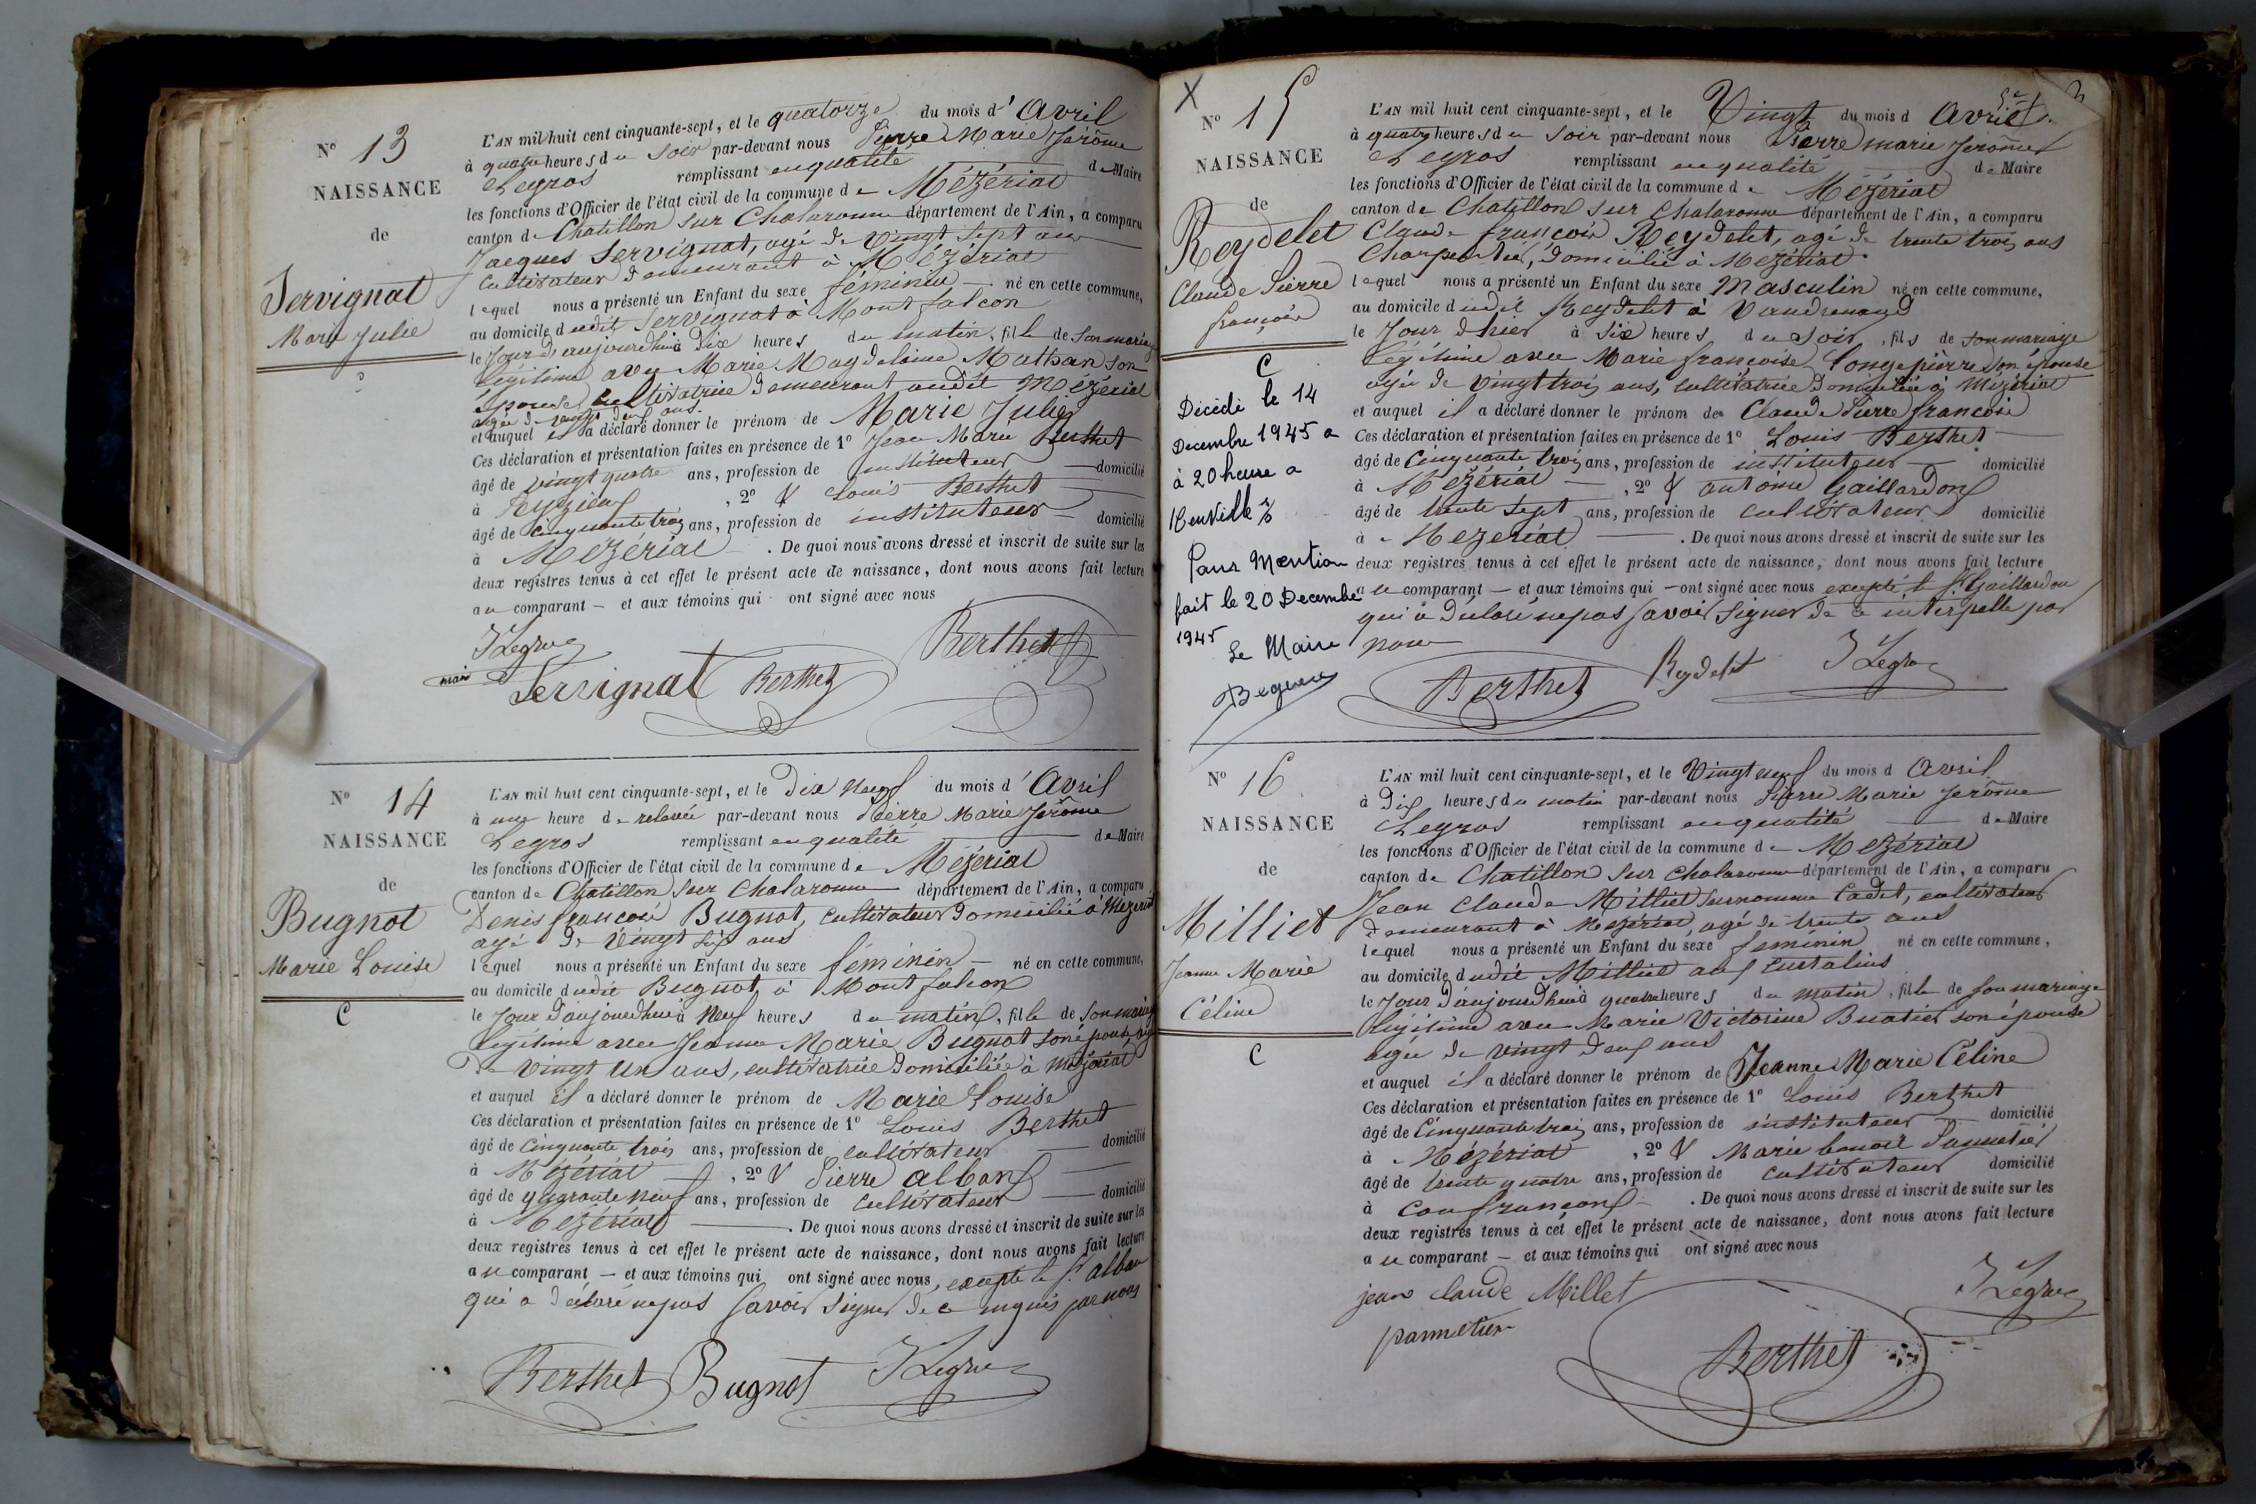 N° 13
NAISSANCE
de
Servignat
Marie Julie
L'AN mil huit cent cinquante-sept, et le quatorze du mois d' Avril
à quatre heures du soir par-devant nous Pierre Marie Jérôme
Legros remplissant en qualité de Maire
les fonctions d'Officier de l'état civil de la commune de Mézériat
canton de Chatillon sur Chalaronne département de l'Ain, a comparu
Jacques Servignat, agé de vingt sept ans
cultivateur demeurant à Mézériat
lequel nous a présenté un Enfant du sexe féminin né en cette commune,
au domicile dudit Servignat à Montfalcon
le Jour d'aujourd'hui à dix heures du matin, fille de son mariage
légitime avec Marie Magdelaine Mathan son
épouse, cultivatrice demeurant audit Mézériat
agée de vingt deux ans.
et auquel il a déclaré donner le prénom de Marie Julie
Ces déclaration et présentation faites en présence de 1° Jean Marie Berthet
âgé de vingt quatre ans, profession de instituteur domicilié
à Peyzieux, 2° & Louis Berthet
âgé de cinquante trois ans, profession de instituteur domicilié
à Mézériat. De quoi nous avons dressé et inscrit de suite sur les
deux registres tenus à cet effet le présent acte de naissance, dont nous avons fait lecture
au comparant — et aux témoins qui ont signé avec nous
J Legros
maire
Servignat Berthet Berthet
N° 14
NAISSANCE
de
Bugnot
Marie Louise
C
L'AN mil huit cent cinquante-sept, et le dix neuf du mois d' Avril
à une heure de relevée par-devant nous Pierre Marie Jérôme
Legros remplissant en qualité de Maire
les fonctions d'Officier de l'état civil de la commune de Mézériat
canton de Chatillon sur Chalaronne département de l'Ain, a comparu
Denis françois Bugnot, cultivateur domicilié à Mézériat
agé de vingt six ans
lequel nous a présenté un Enfant du sexe féminin — né en cette commune,
au domicile dudit Bugnot à Montfalcon
le Jour d'aujourd'hui à neuf heures du matin, fille de son mariage
légitime avec Jeanne Marie Bugnot son épouse, agée
de vingt un ans, cultivatrice domiciliée à Mézériat
et auquel il a déclaré donner le prénom de Marie Louise
Ces déclaration et présentation faites en présence de 1° Louis Berthet
âgé de cinquante trois ans, profession de cultivateur domicilié
à Mézériat, 2° & Pierre alban
âgé de quarante neuf ans, profession de cultivateur domicilié
à Mézériat. De quoi nous avons dressé et inscrit de suite sur les
deux registres tenus à cet effet le présent acte de naissance, dont nous avons fait lecture
au comparant — et aux témoins qui ont signé avec nous, excepté le Sr alban
qui a déclaré ne pas savoir signer de ce enquis par nous
Berthet Bugnot J Legros
X
N° 15
NAISSANCE
de
Reydelet
Claude Pierre
françois
C
Décédé le 14
Decembre 1945 a
à 20 heure a
Neuville
Pour Mention
fait le 20 Decembre
1945
Le Maire
L'AN mil huit cent cinquante-sept, et le Vingt du mois d Avril
à quatre heures du soir par-devant nous Pierre marie Jerôme
Legros remplissant en qualité de Maire
les fonctions d'Officier de l'état civil de la commune de Mézériat
canton de Chatillon sur Chalaronne département de l'Ain, a comparu
Claude françois Reydelet, agé de trente trois ans
Charpentier, domicilié à Mézériat
lequel nous a présenté un Enfant du sexe Masculin né en cette commune,
au domicile dudit Reydelet à Vaudrenand
le Jour d'hier à six heures du soir, fils de son mariage
légitime avec Marie françoise Longepierre son épouse
agée de vingt trois ans, cultivatrice domiciliée à Mézériat
et auquel il a déclaré donner le prénom de Claude Pierre françois
Ces déclaration et présentation faites en présence de 1° Louis Berthet
âgé de cinquante trois ans, profession de instituteur domicilié
à Mézériat, 2° & antoine Gaillardon
âgé de trente sept ans, profession de cultivateur domicilié
à Mézériat. De quoi nous avons dressé et inscrit de suite sur les
deux registres tenus à cet effet le présent acte de naissance, dont nous avons fait lecture
au comparant — et aux témoins qui — ont signé avec nous excepté le Sr Gaillardon
qui a déclaré ne pas savoir signer de ce interpellé par
nous
Berthet Reydelet J Legros
N° 16
NAISSANCE
de
Milliet
Jeanne Marie
Céline
C
L'AN mil huit cent cinquante-sept, et le Vingt neuf du mois d Avril
à dix heures du matin par-devant nous Pierre Marie Jerôme
Legros remplissant en qualité de Maire
les fonctions d'Officier de l'état civil de la commune de Mézériat
canton de Chatillon sur Chalaronne département de l'Ain, a comparu
Jean Claude Milliet surnommé Cadet, cultivateur
demeurant à Mézériat, agé de trente ans
lequel nous a présenté un Enfant du sexe feminin né en cette commune,
au domicile dudit Milliet aux
le Jour d'aujourd'hui à quatre heures du matin, fille de son mariage
légitime avec Marie Victorine Buatier son épouse
agée de vingt deux ans
et auquel il a déclaré donner le prénom de Jeanne Marie Céline
Ces déclaration et présentation faites en présence de 1° Louis Berthet
âgé de Cinquante trois ans, profession de instituteur domicilié
à Mézériat, 2° & Marie benoit Pannetier
âgé de trente quatre ans, profession de cultivateur domicilié
à Confrançon. De quoi nous avons dressé et inscrit de suite sur les
deux registres tenus à cet effet le présent acte de naissance, dont nous avons fait lecture
au comparant — et aux témoins qui ont signé avec nous
jean claude Millet J Legros
pannetier
Berthet